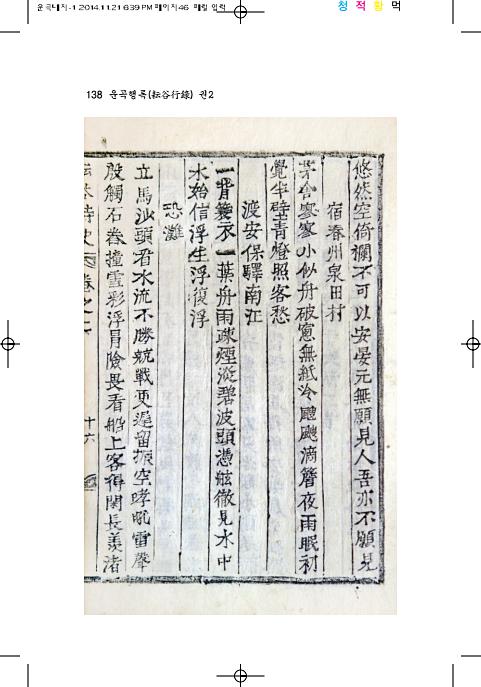 2014.11.21 6:39 PM 페이지46
청 적 황 먹
138 운곡행록(耘谷行錄) 권2
悠然空倚欄不可以安晏元無願見人吾亦不願見
宿春州泉田村
茅舍寥寥小似舟破窓無紙冷颼颼滴簷夜雨眠初
覺半壁靑燈照客愁
渡安保驛南江
一背簑衣一葉舟雨疎煙淡碧波頭憑舷徹見水中
水始信浮生浮復浮
恐灘
立馬汕頭看水流不勝兢戰更遲留振空哮吼雷聲
殷觸石奔撞雪彩浮冒險畏看船上客得閑長羨渚
詩史 卷之 十六